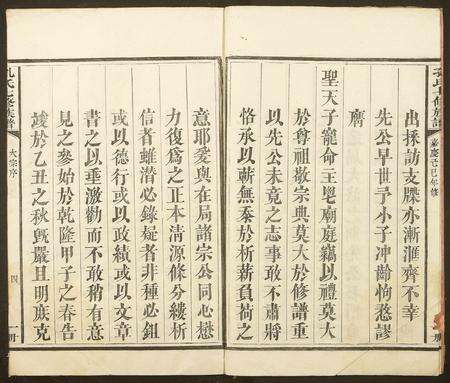 嘉慶己巳年修
出採訪支牒亦漸滙齊不幸
先公早世予小子冲齡恂愗謬
膺
聖天子寵命主鬯廟庭竊以禮莫大
於尊祖敬宗典莫大於修譜重
恪承以蘄無忝於析薪負荷之
以先公未竟之志事敢不肅將
意耶爰與在局諸宗公同心懋
力復為之正本清源條分縷析
信者雖潛必錄疑者非種必鉏
或以德行或以政績或以文章
書之以垂激勸而不敢稍有意
見之參始於乾隆甲子之春告
竣於乙丑之秋旣嚴且明庶克
大宗序
四